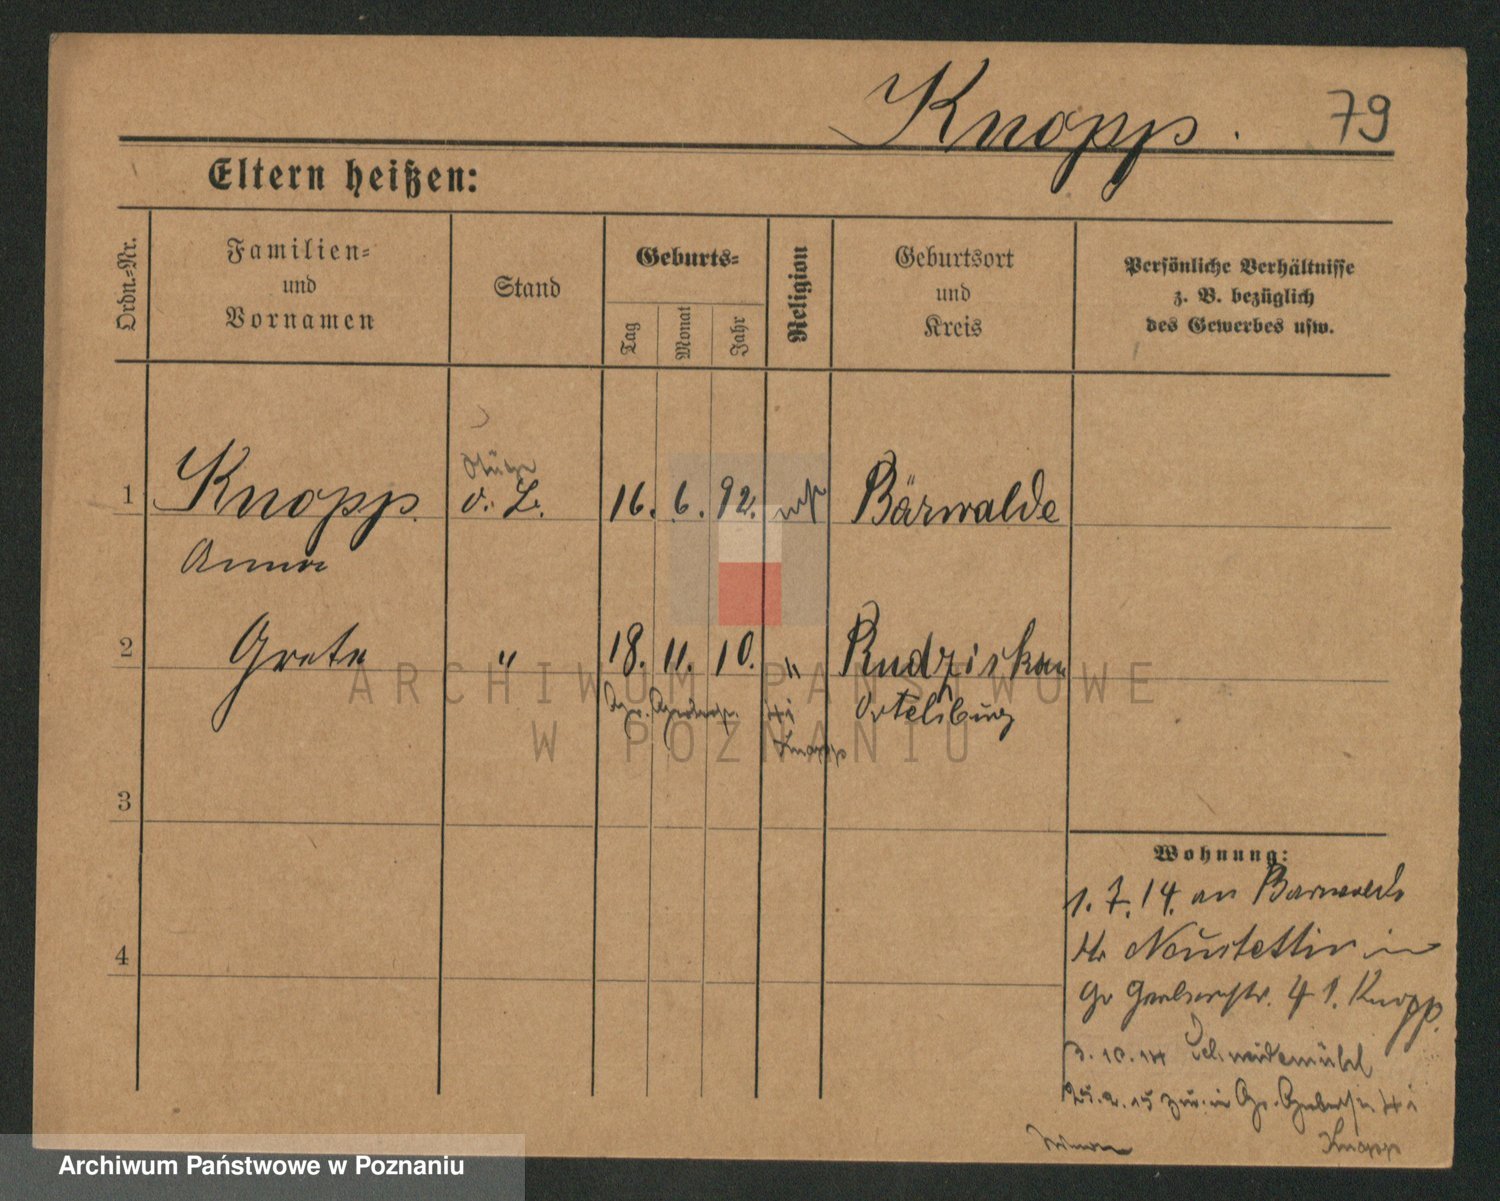 Knopp. 79
Eltern heißen:
Ordn.-Nr.
Familien-
und
Vornamen
Stand
Geburts-
Tag
Monat
Jahr
Religion
Geburtsort
und
Kreis
Persönliche Verhältnisse
z. B. bezüglich
des Gewerbes usw.
1 Knopp. o. L. 16. 6. 92. Bärwalde
Anna
2 Grete " 18. 11. 10. " Rudziskau
Ortelsburg
Knopp
3
4
Wohnung:
1. 7. 14. an Barwalde
Neustettin in
Gr Gerberstr. 41. Knopp.
3. 10. 14 Schneidemühl
25. 2. 15 zur. in Gr. Gerberstr
Knopp
ARCHIWUM PAŃSTWOWE
W POZNANIU
Archiwum Państwowe w Poznaniu